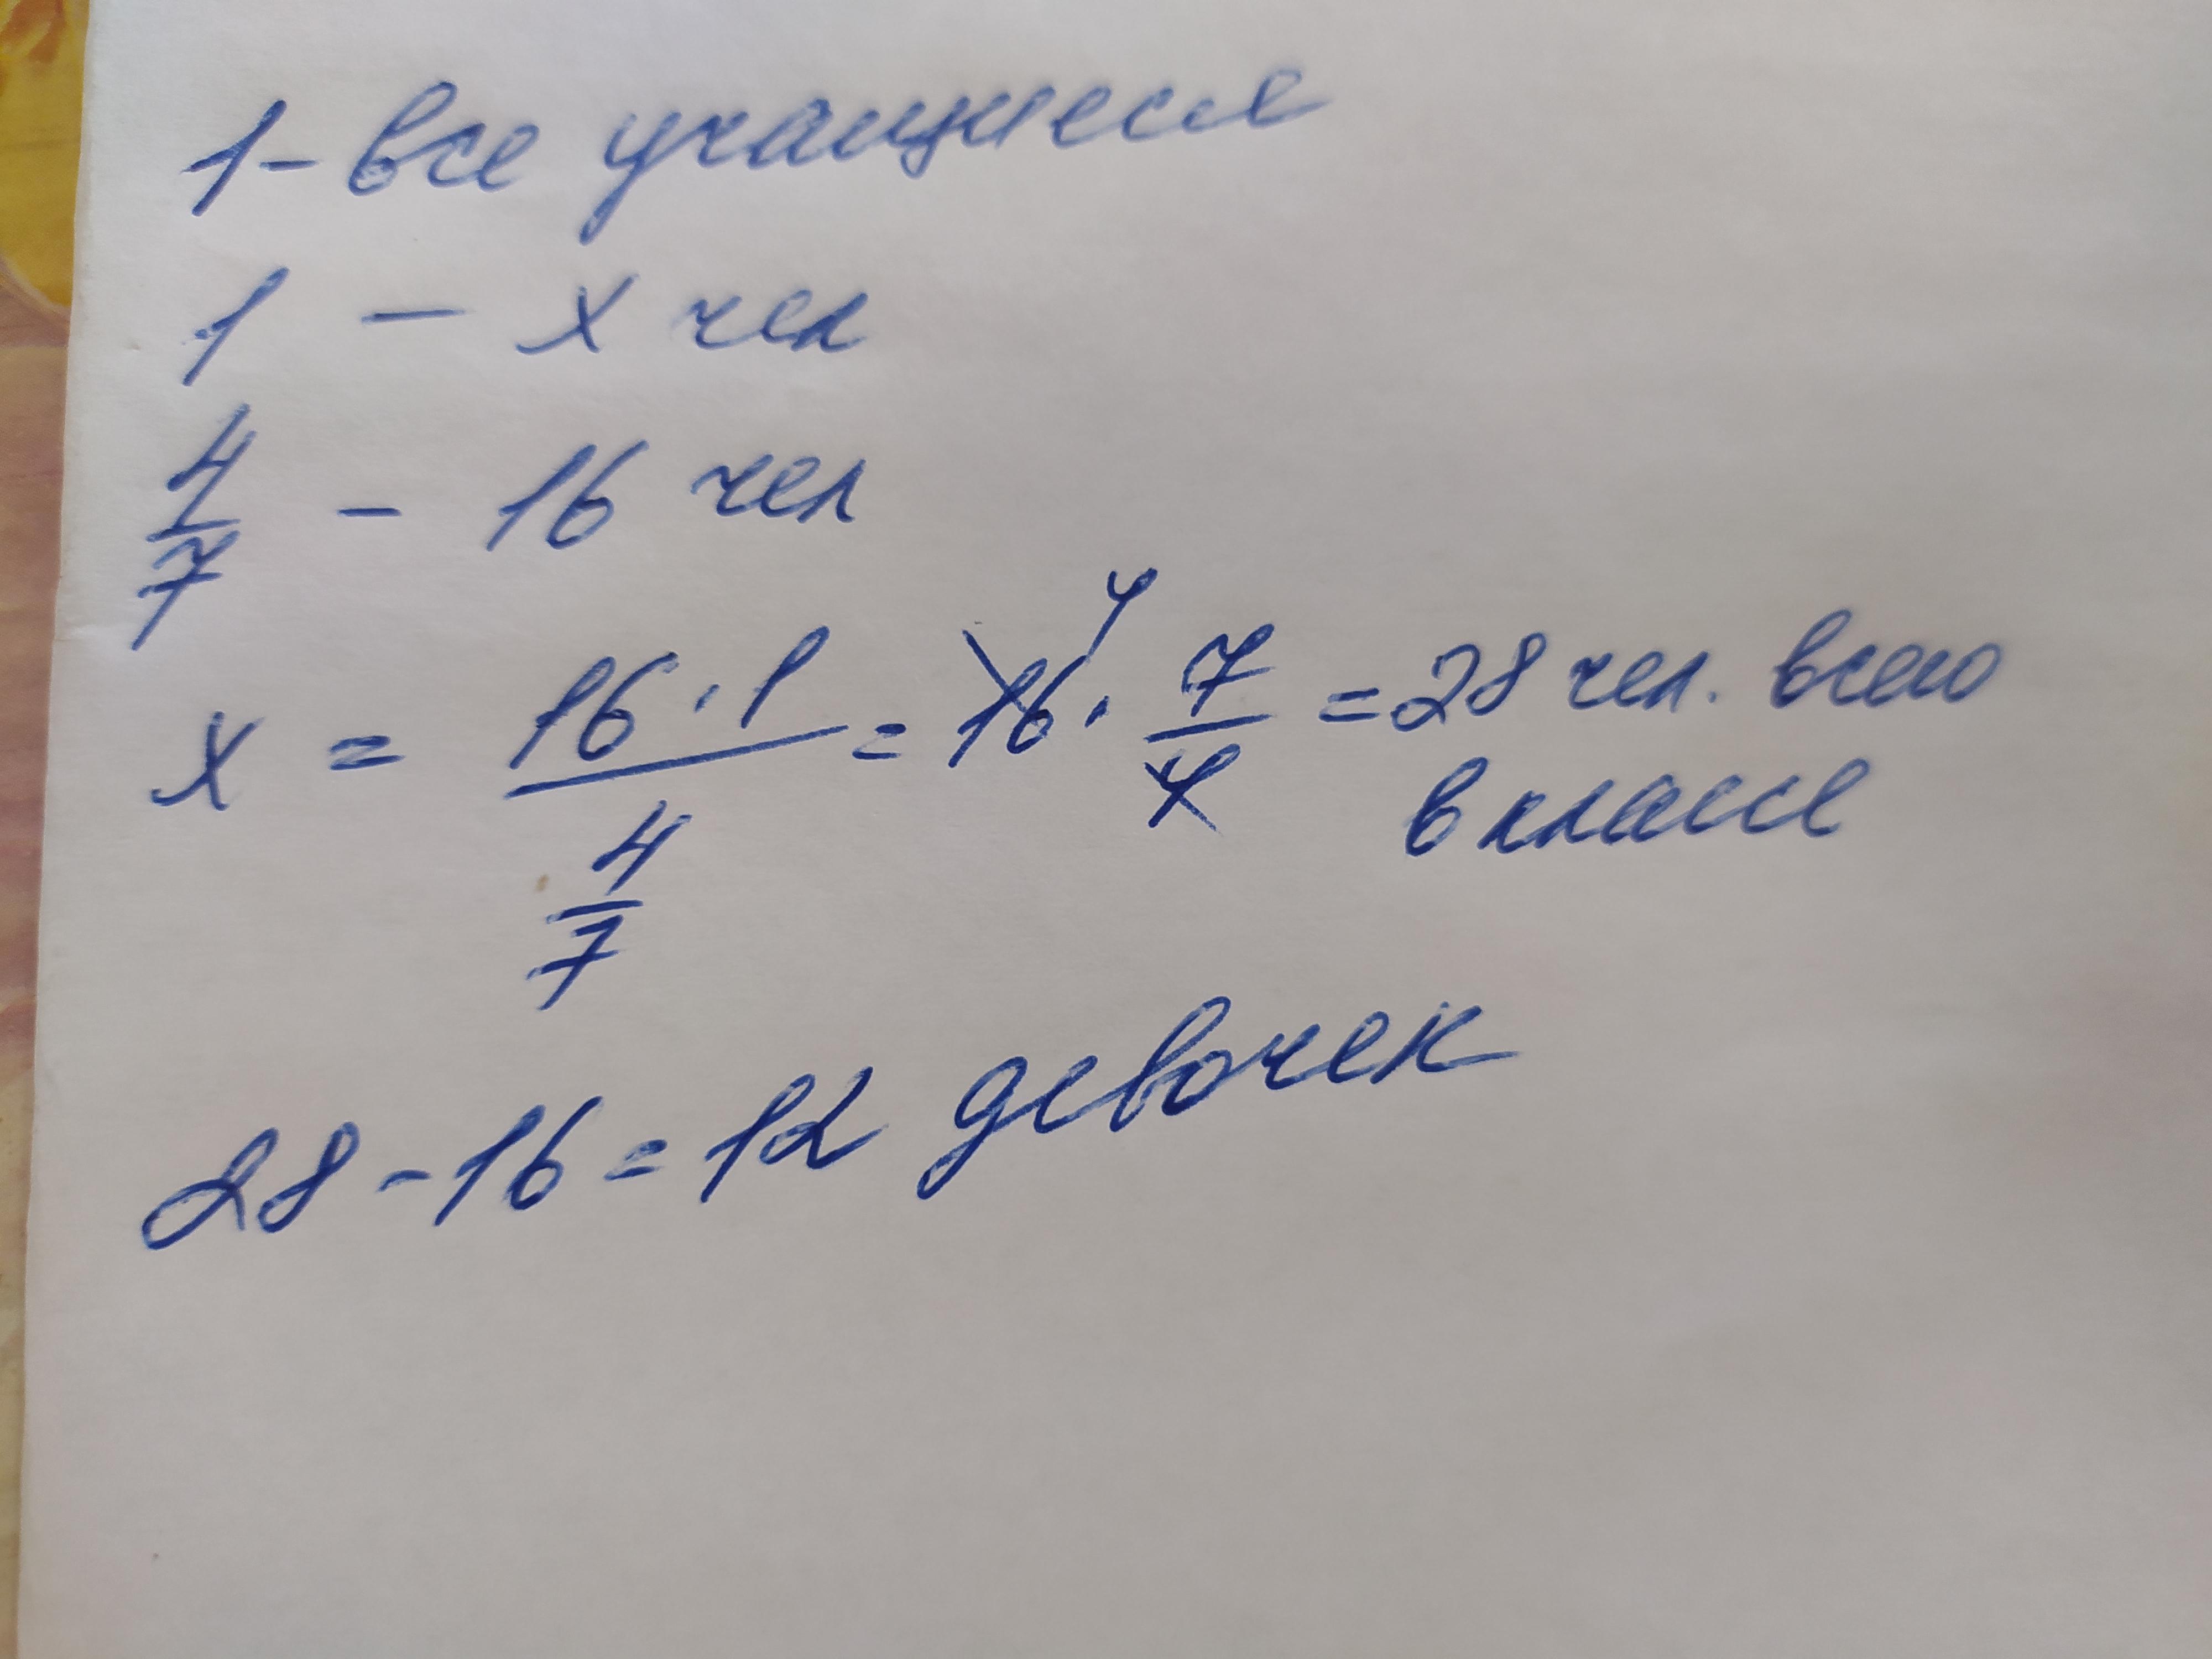 1 - все учащиеся
1 - х чел
4/7 - 16 чел
х = (16 · 1)/(4/7) = 16 4 · 7/4 = 28 чел. всего
в классе
28 - 16 = 12 девочек